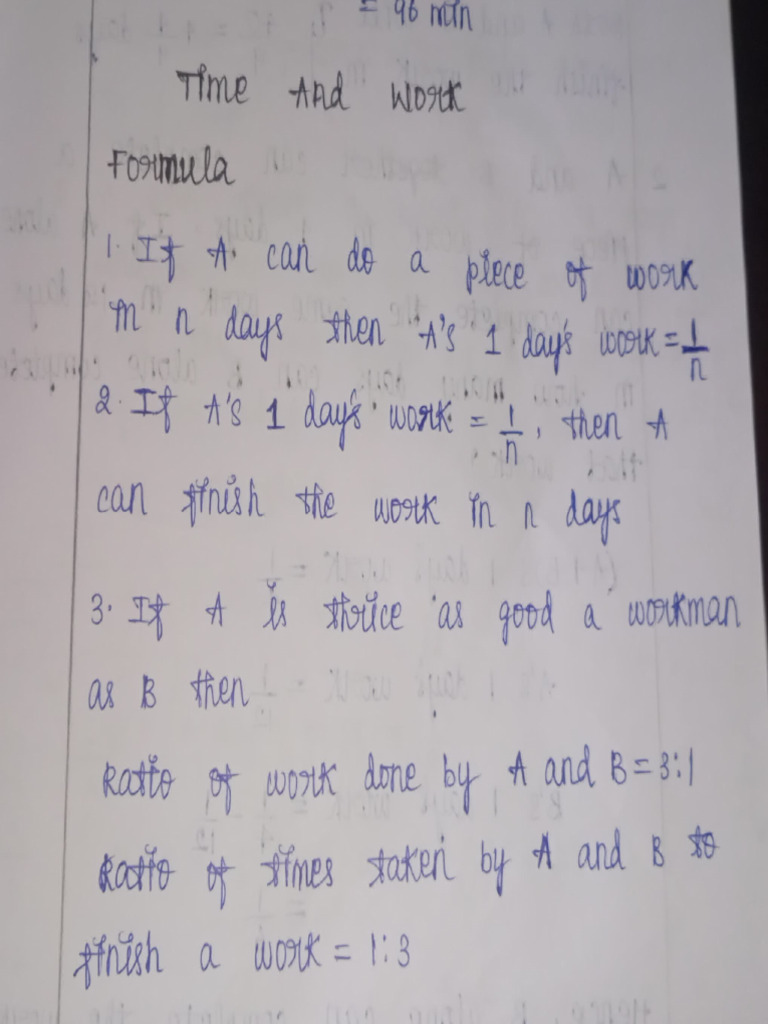 = 96 min
Time And Work
Formula
1. If A can do a piece of work
in n days then A's 1 day's work = 1/n
2. If A's 1 day's work = 1/n, then A
can finish the work in n days
3. If A is thrice as good a workman
as B then
Ratio of work done by A and B = 3:1
Ratio of times taken by A and B to
finish a work = 1:3